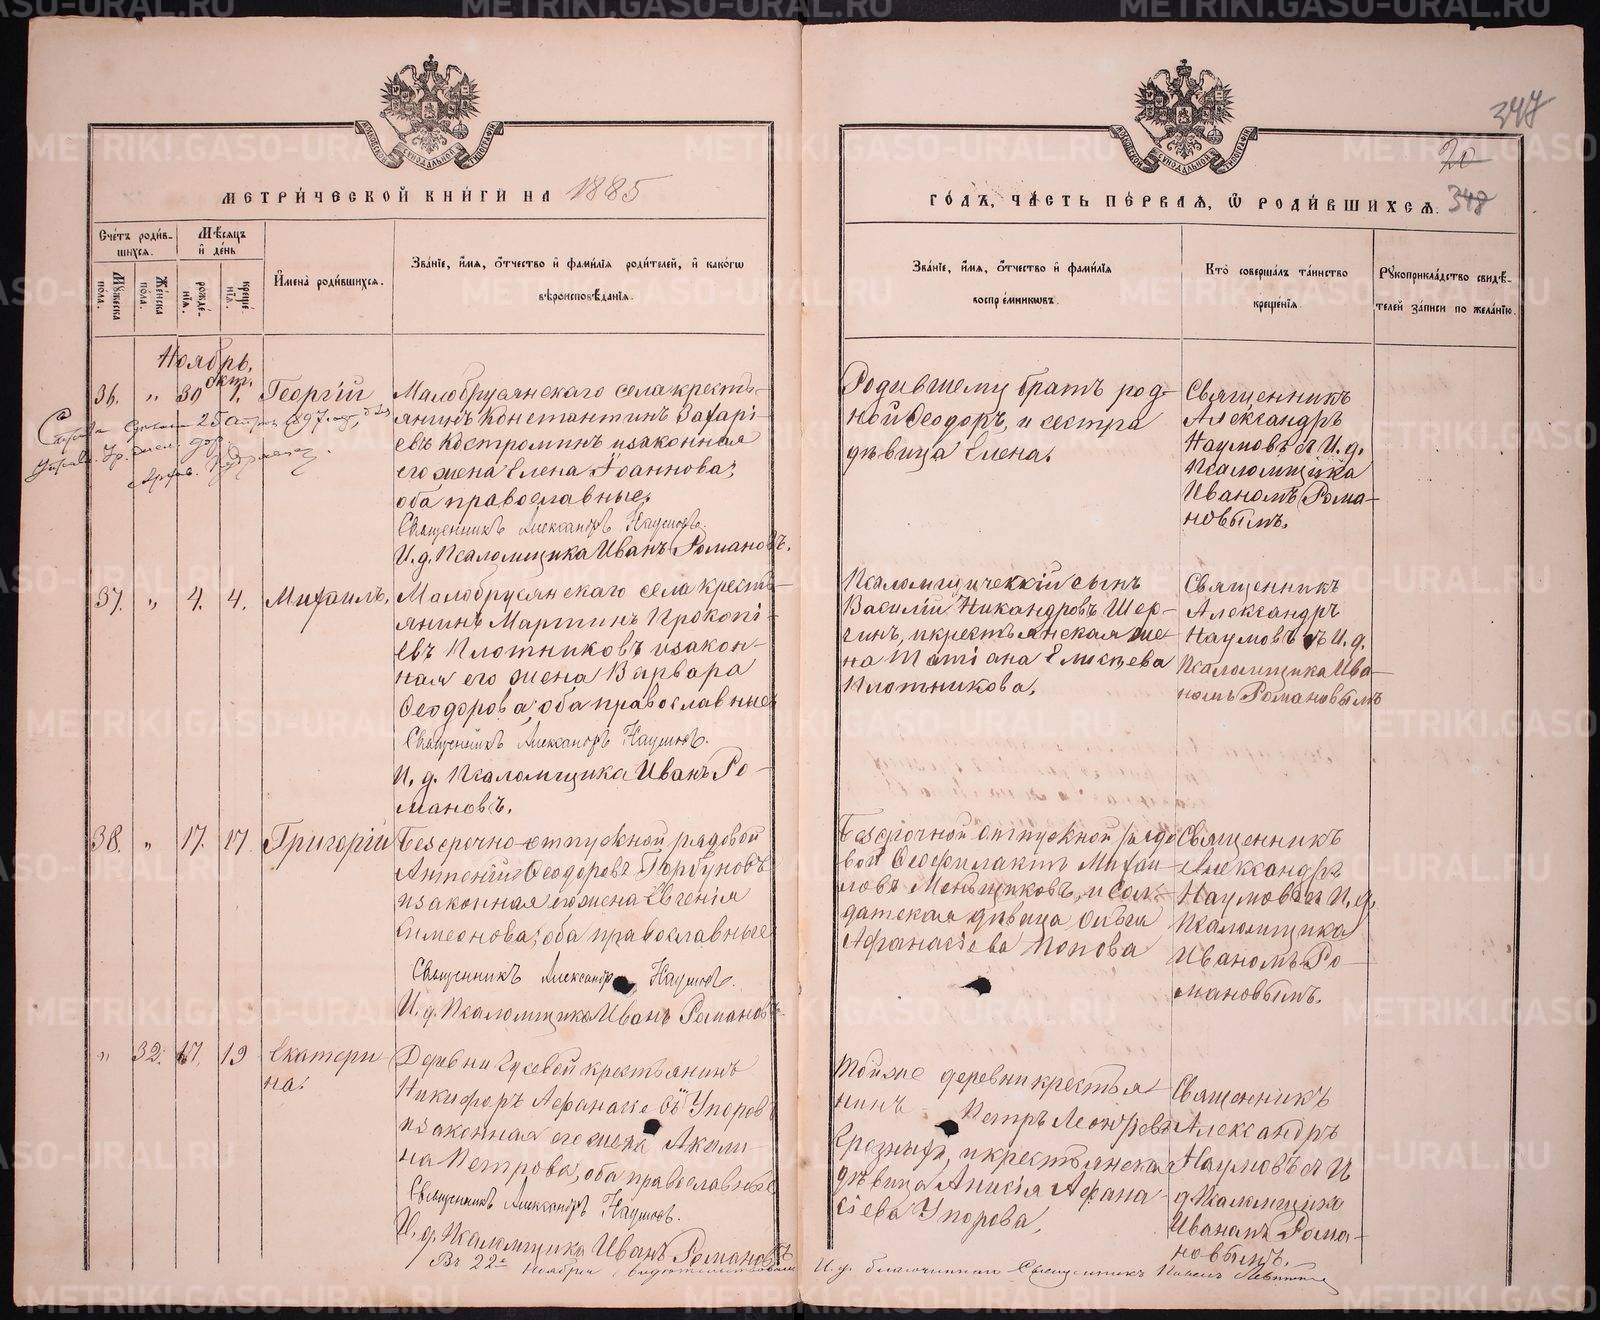 METRIKI.GASO-URAL.RU
347
20
348
МЕТРИ́ЧЕСКОЙ КНИ́ГИ НА 1885
ГО́ДЪ, ЧА́СТЬ ПЕ́РВАЯ, Ѽ РОДИ́ВШИХСЯ.
Сче́тъ роди́в-
шихся.
Мѣ́сяцъ
и҆ де́нь
Му́жеска
по́ла.
Же́нска
по́ла.
рожде́-
нїя.
креще́-
нїя.
И҆мена̀ роди́вшихся.
Зва́нїе, и҆́мя, ѻ҆́тчество и҆ фами́лїя роди́телей, и҆ како́гѡ
вѣроисповѣ́данїя.
Зва́нїе, и҆́мя, ѻ҆́тчество и҆ фами́лїя
воспрїе́мникѡвъ.
Кто̀ соверша́лъ та́инство
креще́нїя.
Рꙋкоприкла́дство свидѣ́-
телей за́писи по жела́нїю.
Ноябрь.
окт.
36. „ 30 1. Георгій
Малобрусянскаго села кресть-
янинъ Константинъ Захарі-
евъ Костроминъ и законная
его жена Елена Іоаннова;
оба православные.
Священникъ Александръ Наумовъ.
И. д. Псаломщика Иванъ Романовъ.
Родившему братъ род-
ной Ѳеодоръ, и сестра
дѣвица Елена.
Священникъ
Александръ
Наумовъ съ И. д.
Псаломщика
Иваномъ Рома-
новымъ.
37. „ 4. 4. Михаилъ.
Малобрусянскаго села кресть-
янинъ Мартинъ Прокопі-
евъ Плотниковъ и закон-
ная его жена Варвара
Ѳеодорова; оба православные
Священникъ Александръ Наумовъ.
И. д. Псаломщика Иванъ Ро-
мановъ.
Псаломщическій сынъ
Василій Никандровъ Шер-
гинъ, и крестьянская же-
на Татіана Елисѣева
Плотникова.
Священникъ
Александръ
Наумовъ съ И. д.
Псаломщика Ива-
номъ Романовымъ
38. „ 17. 17 Григорій
Безсрочно-отпускной рядовой
Антоній Ѳеодоровъ Горбуновъ
и законная его жена Евгенія
Симеонова; оба православные
Священникъ Александръ Наумовъ.
И. д. Псаломщика Иванъ Романовъ
Безсрочной отпускной рядо
вой Ѳеофилактъ Михаи-
ловъ Меньщиковъ, и сол-
датская дѣвица Ольга
Афанасіева Попова
Священникъ
Александръ
Наумовъ и И. д.
Псаломщика
Иваномъ Ро-
мановымъ.
„ 32. 17. 19 Екатери
на.
Деревни Гусевой крестьянинъ
Никифоръ Афанасіевъ Упоровъ
и законная его жена Акили-
на Петрова, оба православные
Священникъ Александръ Наумовъ.
И. д. Псаломщика Иванъ Романовъ
Тойже деревни крестья-
нинъ Петръ Леонтьевъ
Грозныхъ, и крестьянская
дѣвица Анисія Афана-
сіева Упорова.
Священникъ
Александръ
Наумовъ съ И
д Псаломщика
Иваномъ Рома-
новымъ.
Въ 22е ноября свидетельствовалъ И. д. благочиннаго Священникъ